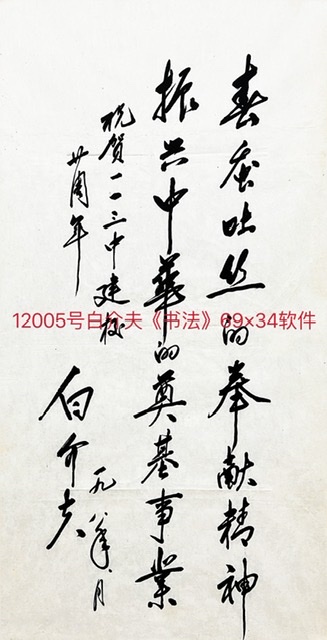 春蚕吐丝的奉献精神
振兴中华的奠基事业
祝贺一一三中建校
廿周年
白介夫
一九八年、月
12005号白介夫《书法》69x34软件